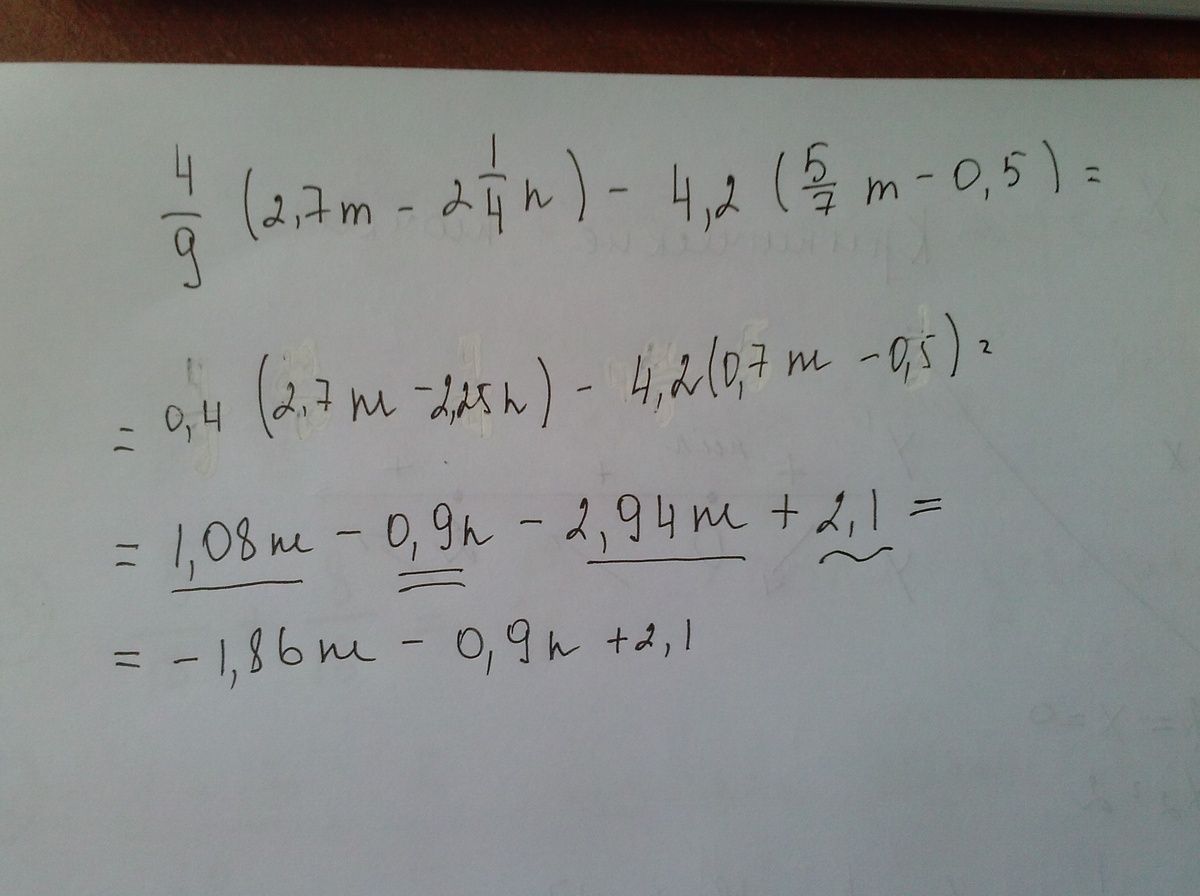 4/9 (2,7m - 2 1/4 n) - 4,2 (5/7 m - 0,5) =
= 0,4 (2,7m - 2,25n) - 4,2(0,7m - 0,5) =
= 1,08m - 0,9n - 2,94m + 2,1 =
= -1,86m - 0,9n + 2,1